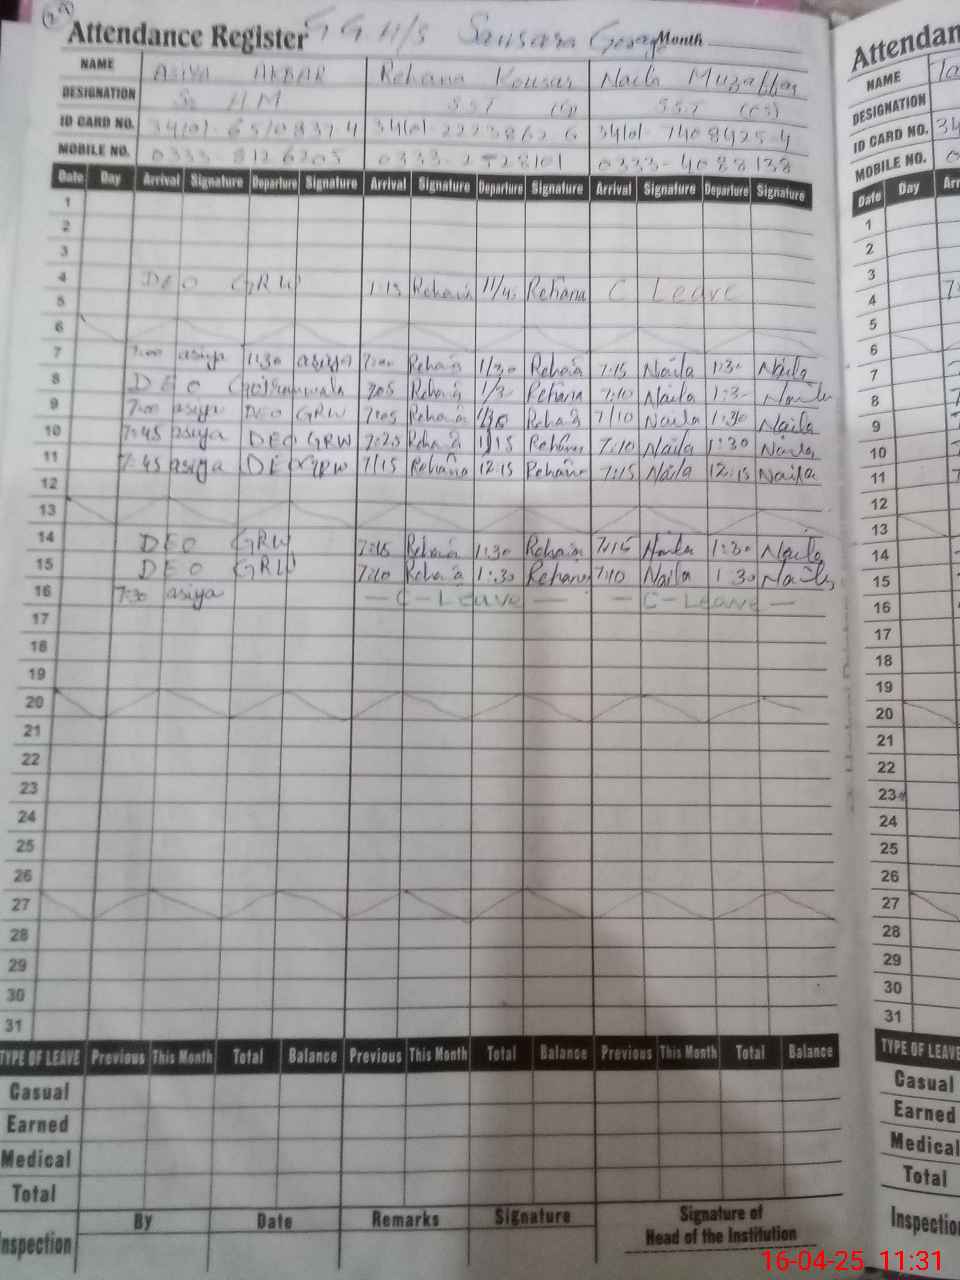 Attendance Register G G H/S Sansara Goraya Month
NAME ASIYA AKBAR Rehana Kousar Naila Muzaffar
DESIGNATION Sr HM SST SST (CS)
ID CARD NO. 34101-6510837-4 34101-2223862-6 34101-7408925-4
MOBILE NO. 0333-8126205 0333-2528101 0333-4088138
Date Day Arrival Signature Departure Signature Arrival Signature Departure Signature Arrival Signature Departure Signature
1
2
3
4 DEO GRW 1:15 Rehana 11/45 Rehana C Leave
5
6
7 7:00 asiya 11:30 asiya 7:00 Rehana 1/30 Rehana 7:15 Naila 1:30 Naila
8 DEO Gujranwala 7:05 Rehana 1/3 Rehana 7:10 Naila 1:3 Naila
9 7:00 asiya DEO GRW 7:05 Rehana 1/30 Rehana 7/10 Naila 1:30 Naila
10 7:45 asiya DEO GRW 7:25 Rehana 1/15 Rehana 7:10 Naila 1:30 Naila
11 7:45 asiya DEO GRW 7/15 Rehana 12:15 Rehana 7:15 Naila 12:15 Naila
12
13
14 DEO GRW 7:15 Rehana 1:30 Rehana 7:15 Naila 1:30 Naila
15 DEO GRW 7:10 Rehana 1:30 Rehana 7:10 Naila 1 30 Naila
16 7:30 asiya — C-Leave — — C-Leave —
17
18
19
20
21
22
23
24
25
26
27
28
29
30
31
TYPE OF LEAVE Previous This Month Total Balance Previous This Month Total Balance Previous This Month Total Balance
Casual
Earned
Medical
Total
By Date Remarks Signature Signature of
Head of the Institution
Inspection
Attendan
NAME
DESIGNATION
ID CARD NO. 34
MOBILE NO. 0
Date Day Arr
1
2
3
4
5
6
7
8
9
10
11
12
13
14
15
16
17
18
19
20
21
22
23
24
25
26
27
28
29
30
31
TYPE OF LEAVE
Casual
Earned
Medical
Total
Inspection
16-04-25 11:31